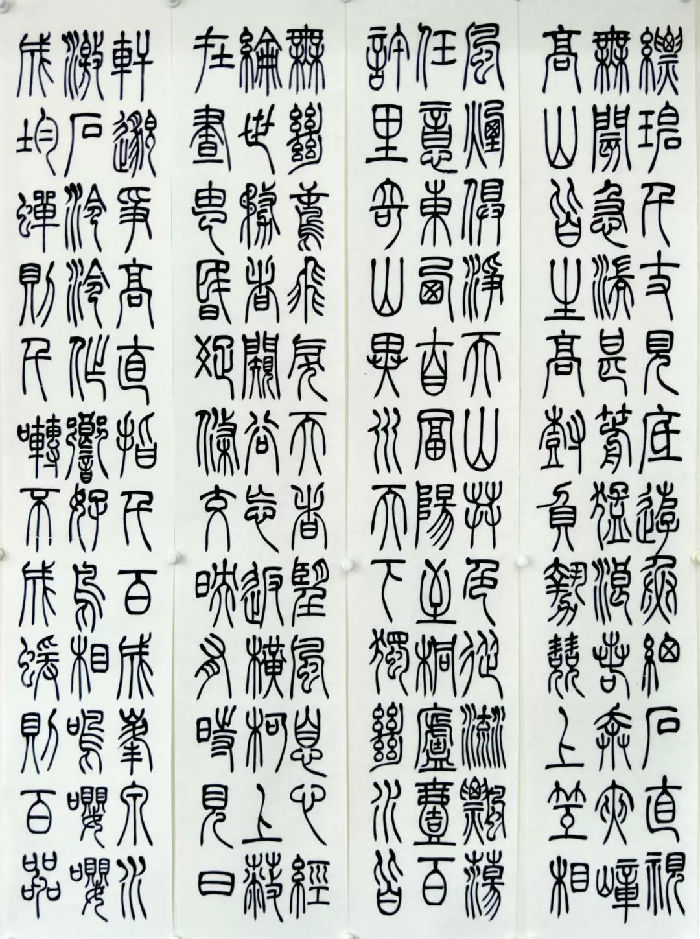 縹碧千丈見底游魚細石直視
無閡急湍甚箭猛浪若奔夾嶂
高山皆生高樹負勢競上互相
風煙俱淨天山共色從流飄蕩
任意東西自富陽至桐廬壹百
許里奇山異水天下獨絕水皆
無絕鳶飛戾天者望風息心經
綸世務者闚谷忘返橫柯上蔽
在晝昏疏條交映有時見日
軒邈爭高直指千百成峯泉水
激石泠泠作響好鳥相鳴嚶嚶
成均蟬則千囀不成蝯則百嘂